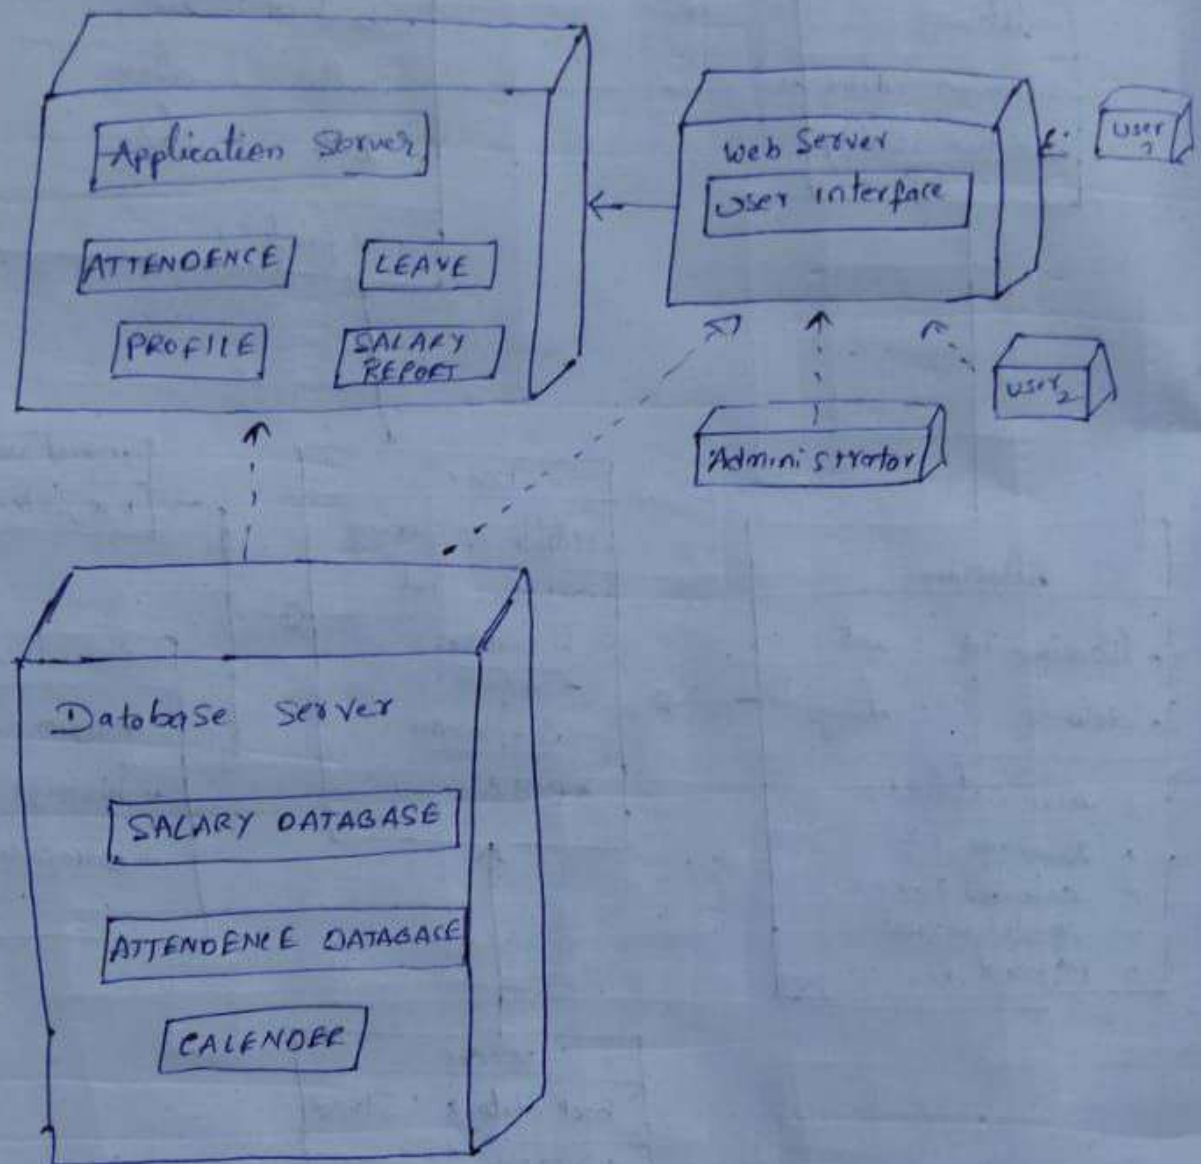 Application Server
ATTENDENCE
LEAVE
PROFILE
SALARY
REPORT
Web Server
User interface
User
1
User2
Administrator
Database Server
SALARY DATABASE
ATTENDENCE DATABASE
CALENDER